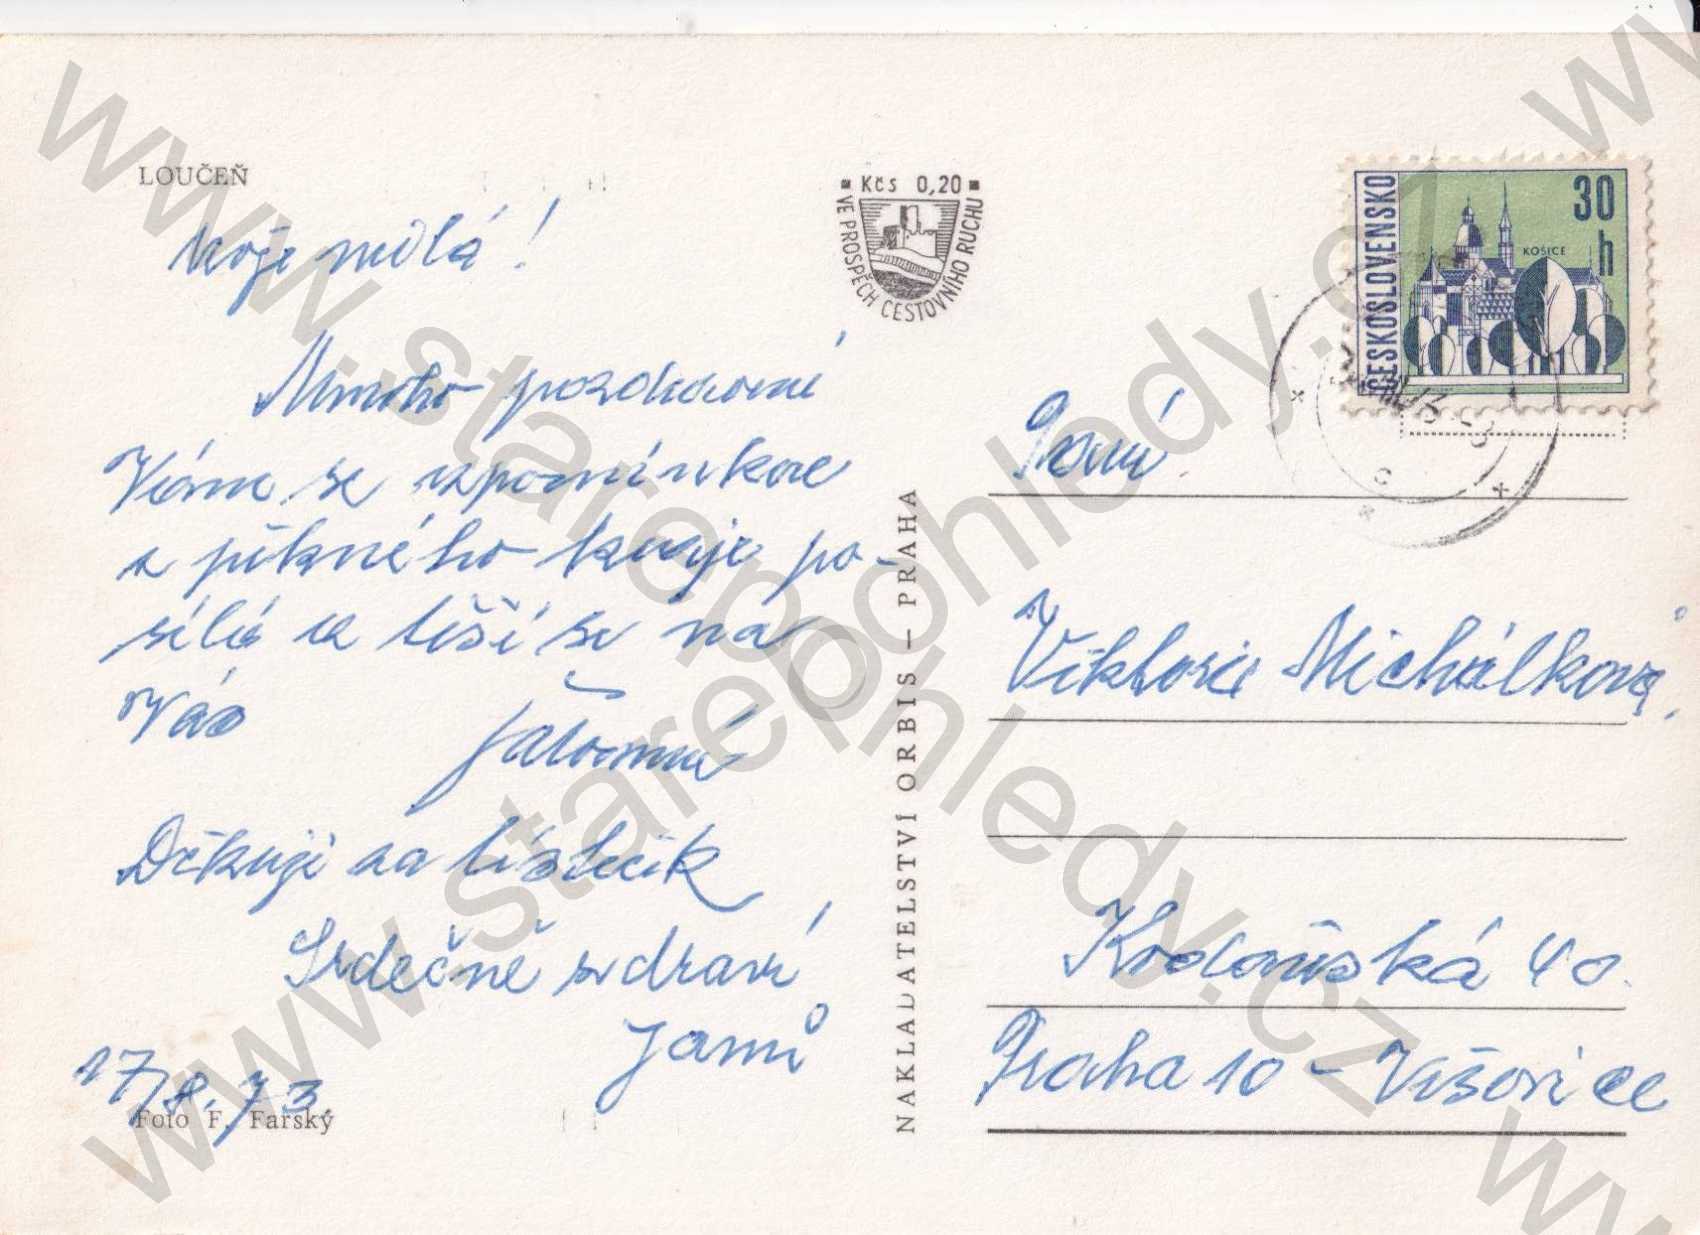 LOUČEŇ
Moje milá!
Mnoho pozdravů
Vám se vzpomínkou
z pěkného kraje po-
sílá a těší se na
Vás
Děkuji za lísteček
Srdečně zdraví
17/8.73.
Foto F. Farský
Kčs 0,20
VE PROSPĚCH CESTOVNÍHO RUCHU
NAKLADATELSTVÍ ORBIS — PRAHA
ČESKOSLOVENSKO
30 h
KOŠICE
Paní
Viktorie Michálková,
Kodaňská 40.
Praha 10 - Vršovice
www.starepohledy.cz
www.starepohledy.cz